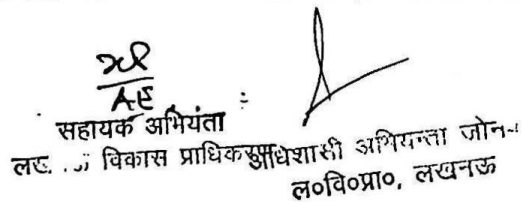 AE
सहायक अभियंता
विकास प्राधिकरण
अधिशासी अभियन्ता जोन-
ल०वि०प्रा०, लखनऊ